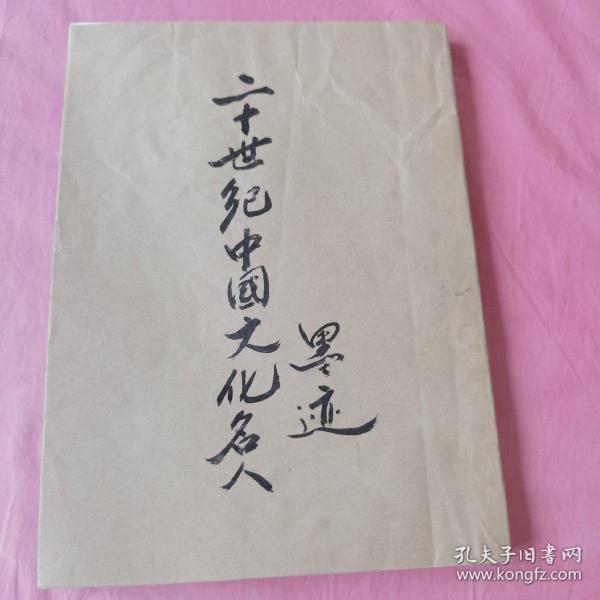 二十世纪中國文化名人
墨迹
孔夫子旧书网
www.kongfz.com